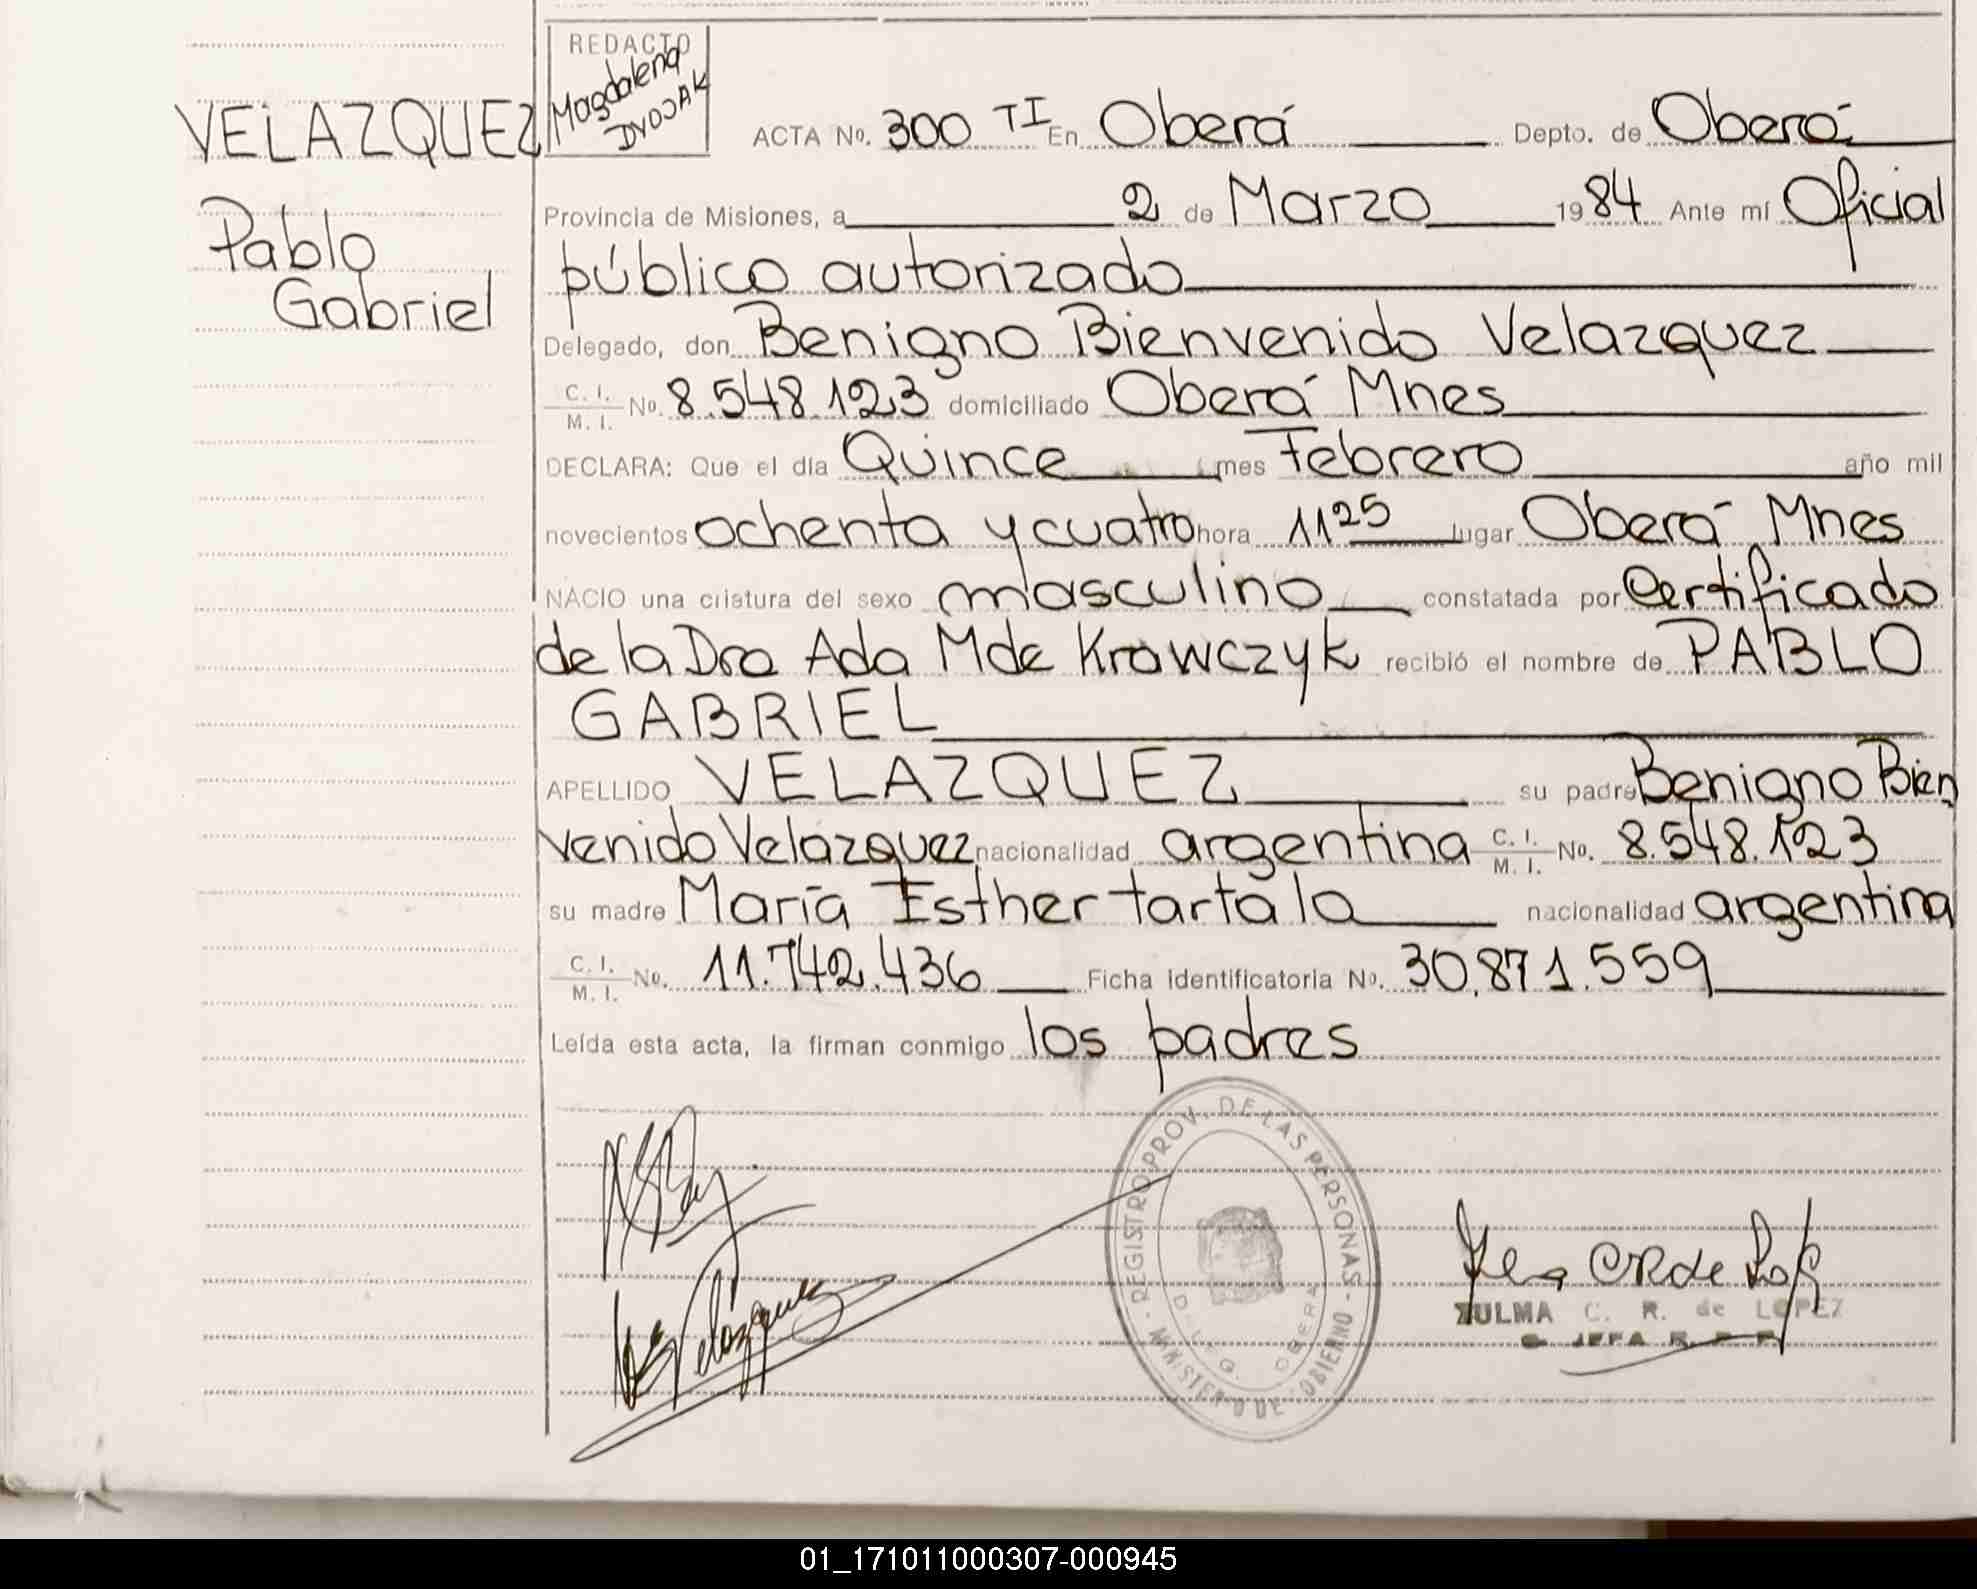 REDACTO
Magdalena
DVOJAK
VELAZQUEZ
Pablo
Gabriel
ACTA No. 300 TI En Oberá Depto. de Oberá
Provincia de Misiones, a 2 de Marzo 1984 Ante mí Oficial
público autorizado
Delegado, don Benigno Bienvenido Velazquez
C. I. M. I. No. 8.548.123 domiciliado Oberá Mnes
DECLARA: Que el día Quince mes Febrero año mil
novecientos ochenta y cuatro hora 11 25 lugar Oberá Mnes
NACIO una criatura del sexo masculino constatada por Certificado
de la Dra Ada M de Krawczyk recibió el nombre de PABLO
GABRIEL
APELLIDO VELAZQUEZ su padre Benigno Bien
venido Velazquez nacionalidad argentina C. I. M. I. No. 8.548.123
su madre María Esther Tartala nacionalidad argentina
C. I. M. I. No. 11.742.436 Ficha identificatoria No. 30.871.559
Leída esta acta, la firman conmigo los padres
REGISTRO PROV. DE LAS PERSONAS - MINISTERIO DE GOBIERNO
DELEG. OBERA
Velazquez
ZULMA C. R. de LOPEZ
JEFA R. P. P.
01_171011000307-000945